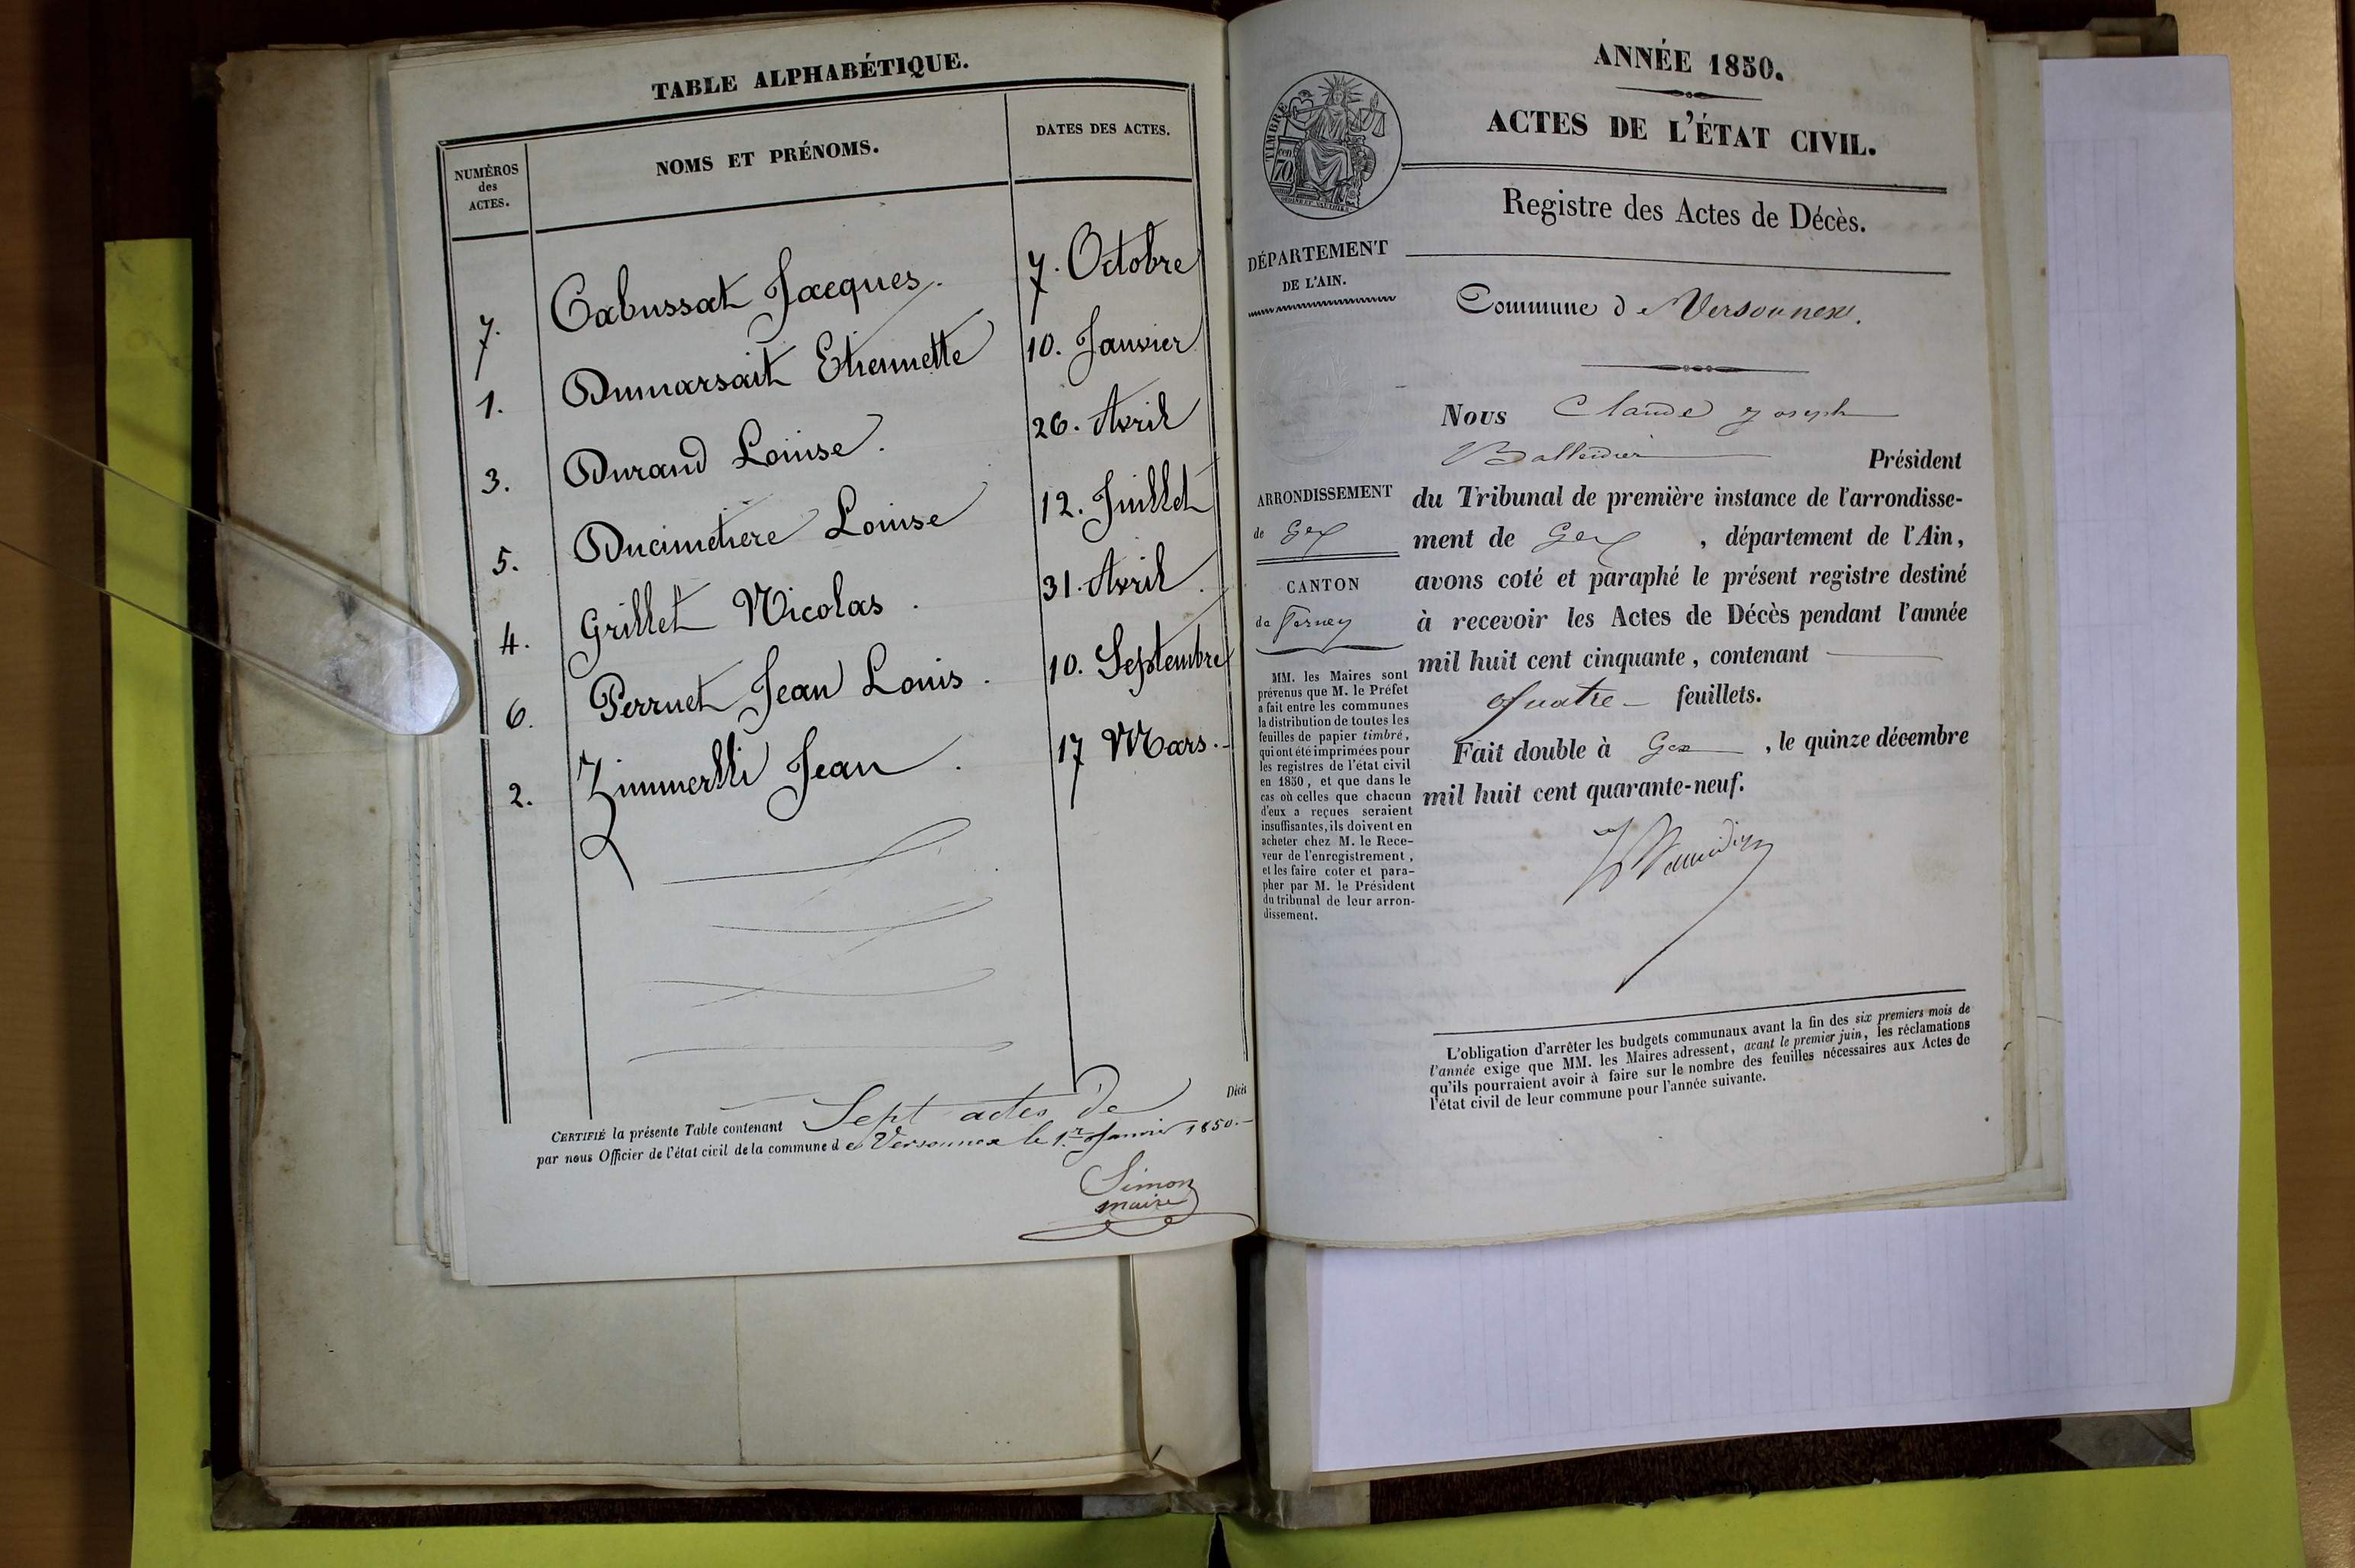 TABLE ALPHABÉTIQUE.
NUMÉROS des ACTES.
NOMS ET PRÉNOMS.
DATES DES ACTES.
7. Cabussat Jacques. 7. Octobre
1. Dumarsait Etiennette 10. Janvier
3. Durand Louise. 26. Avril
5. Ducimetiere Louise 12. Juillet
4. Grillet Nicolas. 31. Avril.
6. Perruet Jean Louis. 10. Septembre
2. Zimmerlli Jean. 17 Mars.
CERTIFIÉ la présente Table contenant Sept actes De Décès
par nous Officier de l'état civil de la commune de Versonnex le 1.er Janvier 1850.
Simon
maire
ANNÉE 1850.
ACTES DE L'ÉTAT CIVIL.
Registre des Actes de Décès.
TIMBRE
70
DÉPARTEMENT
DE L'AIN.
Commune de Versonnex.
ARRONDISSEMENT
de Gex
CANTON
de Ferney
MM. les Maires sont
prévenus que M. le Préfet
a fait entre les communes
la distribution de toutes les
feuilles de papier timbré,
qui ont été imprimées pour
les registres de l'état civil
en 1850, et que dans le
cas où celles que chacun
d'eux a reçues seraient
insuffisantes, ils doivent en
acheter chez M. le Rece-
veur de l'enregistrement,
et les faire coter et para-
pher par M. le Président
du tribunal de leur arron-
dissement.
Nous Claude Joseph
Balleidier Président
du Tribunal de première instance de l'arrondisse-
ment de Gex, département de l'Ain,
avons coté et paraphé le présent registre destiné
à recevoir les Actes de Décès pendant l'année
mil huit cent cinquante, contenant
quatre feuillets.
Fait double à Gex, le quinze décembre
mil huit cent quarante-neuf.
L'obligation d'arrêter les budgets communaux avant la fin des six premiers mois de
l'année exige que MM. les Maires adressent, avant le premier juin, les réclamations
qu'ils pourraient avoir à faire sur le nombre des feuilles nécessaires aux Actes de
l'état civil de leur commune pour l'année suivante.